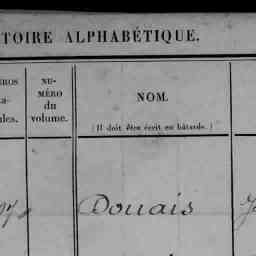 TOIRE ALPHABÉTIQUE.
NU-
MÉRO
du
volume.
NOM.
(Il doit être écrit en bâtarde.)
Douais